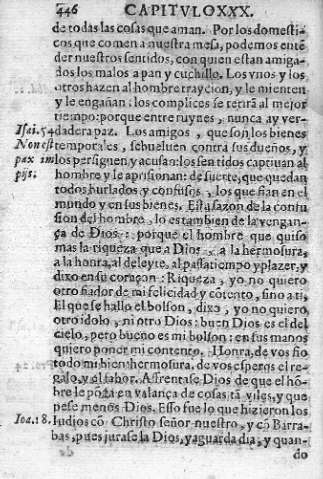 446 CAPITVLO XXX.
de todas las cosas que aman. Por los domesti-
cos que comen a nuestra mesa, podemos enté
der nuestros sentidos, con quien estan amiga-
dos los malos a pan y cuchillo. Los vnos y los
otros hazen al hombre traycion, y le mienten
y le engañan: los complices se
tiempo: porque entre ruynes, nunca ay ver-
Isai. 54 dadera paz. Los amigos, que son los bienes
Non est temporales, se bueluen contra sus dueños, y
pax im los persiguen y acusan: los sentidos captiuan al
pijs. hombre y le aprisionan: de suerte, que quedan
todos burlados y confusos, los que fian en el
mundo y en sus bienes. Esta sazon de la confu
sion del hombre, lo es tambien de la vengan-
ça de Dios: porque el hombre que quiso
mas la riqueza que a Dios, a la hermosura,
a la honra, al deleyte, al passatiempo y plazer, y
dixo en su coraçon: Riqueza, yo no quiero
otro fiador de mi felicidad y cótento, sino a ti,
El que se hallo el bolson, dixo, yo no quiero
otro idolo, ni otro Dios: buen Dios es el del
cielo, pero bueno es mi bolson: en sus manos
quiero poner mi contento. Honra, de vos fio
todo mi bien: hermosura, de vos espero el re-
galo, y el fabor. Afrentase Dios de que el hó-
bre le póga en valança de cosas tá viles, y que
pese menos Dios. Esso fue lo que hizieron los
Ioa. 18. Iudios có Christo señor nuestro, y có Barra-
bas, pues jurase la Dios, y aguarda dia, y quan-
do